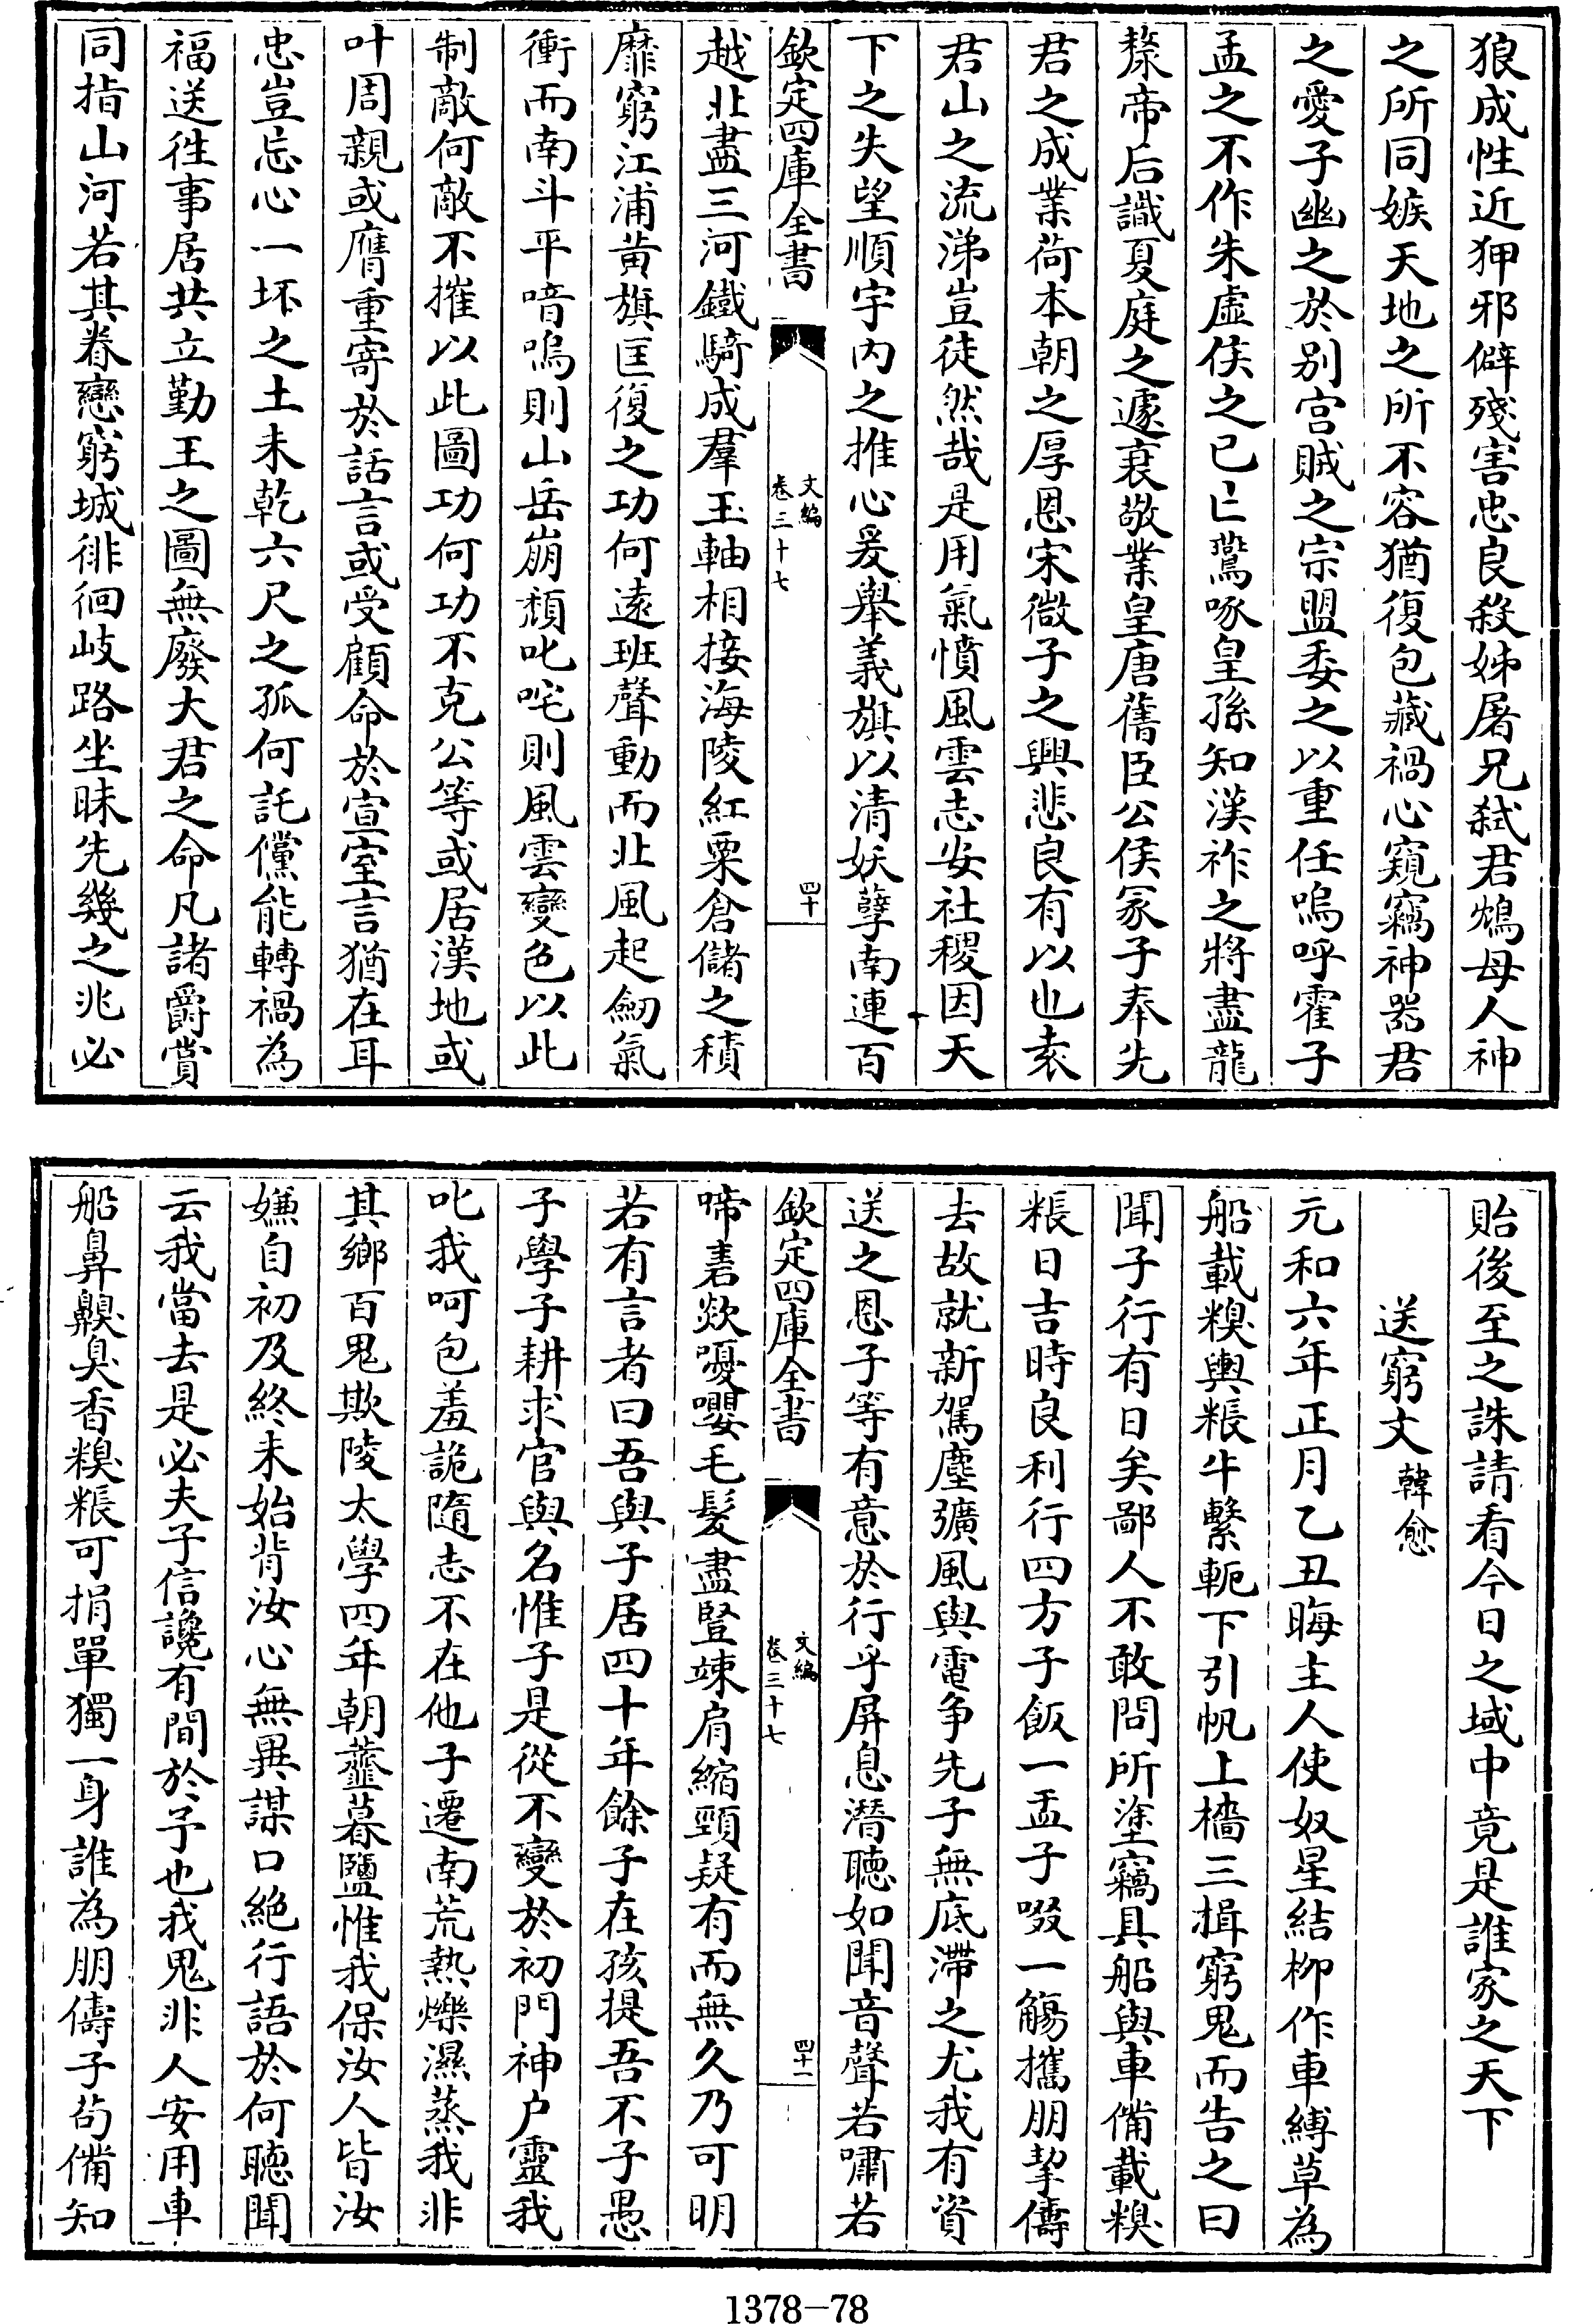 狼成性近狎邪僻殘害忠良殺姊屠兄弑君鴆母人神
之所同嫉天地之所不容猶復包藏禍心窺竊神器君
之愛子幽之於别宫賊之宗盟委之以重任嗚呼霍子
孟之不作朱虛侯之已亡鷰啄皇孫知漢祚之將盡龍
漦帝后識夏庭之遽衰敬業皇唐舊臣公侯冢子奉先
君之成業荷本朝之厚恩宋微子之興悲良有以也袁
君山之流涕豈徒然哉是用氣憤風雲志安社稷因天
下之失望順宇内之推心爰舉義旗以清妖孽南連百
欽定四庫全書 文編 卷三十七 四十
越北盡三河鐵騎成羣玉軸相接海陵紅粟倉儲之積
靡窮江浦黄旗匡復之功何遠班聲動而北風起劒氣
衝而南斗平喑嗚則山岳崩頽叱咤則風雲變色以此
制敵何敵不摧以此圖功何功不克公等或居漢地或
叶周親或膺重寄於話言或受顧命於宣室言猶在耳
忠豈忘心一坏之土未乾六尺之孤何託儻能轉禍為
福送徃事居共立勤王之圖無廢大君之命凡諸爵賞
同指山河若其眷戀窮城徘徊岐路坐昧先幾之兆必
貽後至之誅請看今日之域中竟是誰家之天下
送窮文 韓愈
元和六年正月乙丑晦主人使奴星結柳作車縛草為
船載糗輿粻牛繫軛下引帆上檣三揖窮鬼而告之曰
聞子行有日矣鄙人不敢問所塗竊具船與車備載糗
粻日吉時良利行四方子飯一盂子啜一觴攜朋挈儔
去故就新駕塵彍風與電争先子無底滯之尤我有資
送之恩子等有意於行乎屏息潛聽如聞音聲若嘯若
欽定四庫全書 文編 卷三十七 四十一
啼砉欻嚘嚶毛髮盡豎竦肩縮頸疑有而無久乃可明
若有言者曰吾與子居四十年餘子在孩提吾不子愚
子學子耕求官與名惟子是從不變於初門神户靈我
叱我呵包羞詭隨志不在他子遷南荒熱爍濕蒸我非
其鄉百鬼欺陵太學四年朝虀暮鹽惟我保汝人皆汝
嫌自初及終未始背汝心無異謀口絶行語於何聽聞
云我當去是必夫子信讒有間於予也我鬼非人安用車
船鼻齅臭香糗粻可捐單獨一身誰為朋儔子茍備知
1378-78